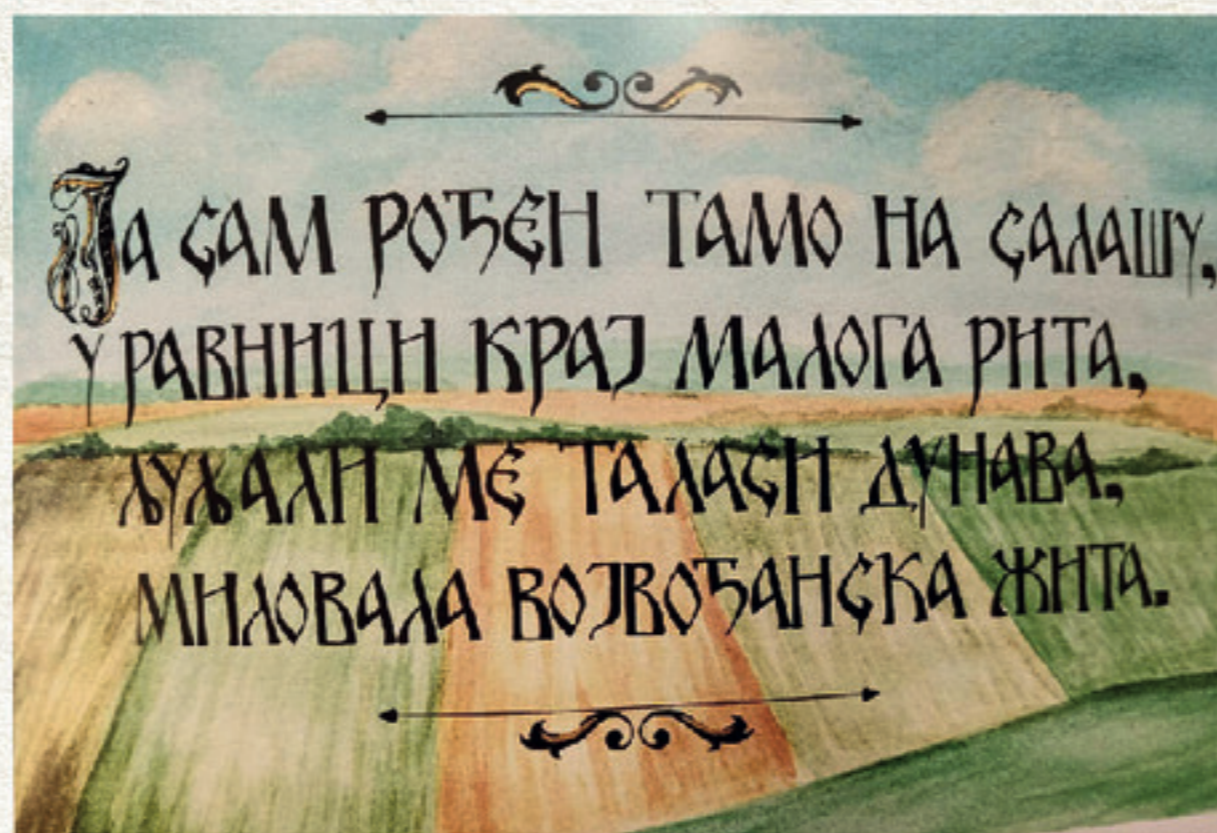 Ја сам рођен тамо на салашу,
у равници крај малога рита,
љуљали ме таласи Дунава,
миловала војвођанска жита.